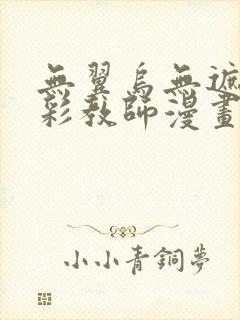 無翼烏無遮
彩教師漫畫
小小青銅夢